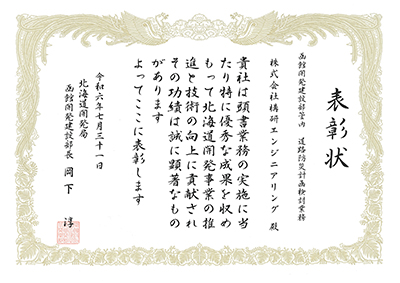 表彰状
函館開発建設部管内 道路防災計画検討業務
株式会社構研エンジニアリング 殿
貴社は頭書業務の実施に当
たり特に優秀な成果を収め
もって北海道開発事業の推
進と技術の向上に貢献され
その功績は誠に顕著なもの
があります
よってここに表彰します
令和六年七月三十一日
北海道開発局
函館開発建設部長 岡下 淳